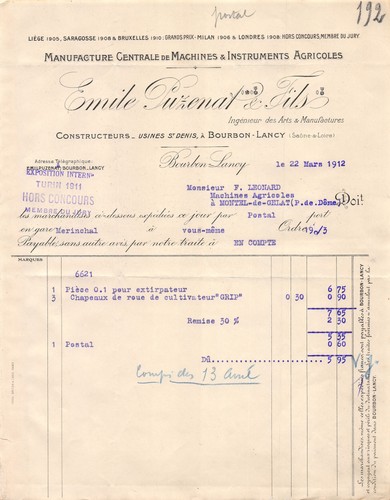 postal
192
LIÈGE 1905, SARAGOSSE 1908 & BRUXELLES 1910: GRANDS-PRIX - MILAN 1906 & LONDRES 1908: HORS CONCOURS, MEMBRE DU JURY.
MANUFACTURE CENTRALE DE MACHINES & INSTRUMENTS AGRICOLES
Emile Puzenat & Fils
Ingénieur des Arts & Manufactures
CONSTRUCTEURS - USINES ST DENIS, À BOURBON-LANCY (Saône & Loire)
Adresse Télégraphique:
EMILPUZENAT, BOURBON-LANCY
Bourbon-Lancy, le 22 Mars 1912
EXPOSITION INTERN
TURIN 1911
HORS CONCOURS
MEMBRE DU JURY
Monsieur F. LEONARD
Machines Agricoles
à MONTEL-de-GELAT (P.de Dôme) Doit
les marchandises ci-dessous expédiées ce jour par Postal port
en gare Merinchal à vous-même Ordre
Payable sans autre avis par notre traite à EN COMPTE
MARQUES
6621
1 Pièce O.1 pour extirpateur 6 75
3 Chapeaux de roue de cultivateur "GRIP" 0 30 0 90
7 65
Remise 30 % 2 30
5 35
1 Postal 0 60
Dû 5 95
13 Avril